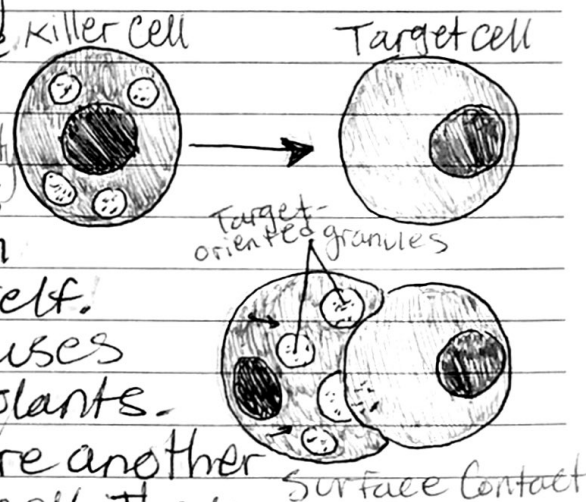 Killer Cell
Target cell
Target-
oriented granules
elf.
uses
plants.
re another
Surface Contact